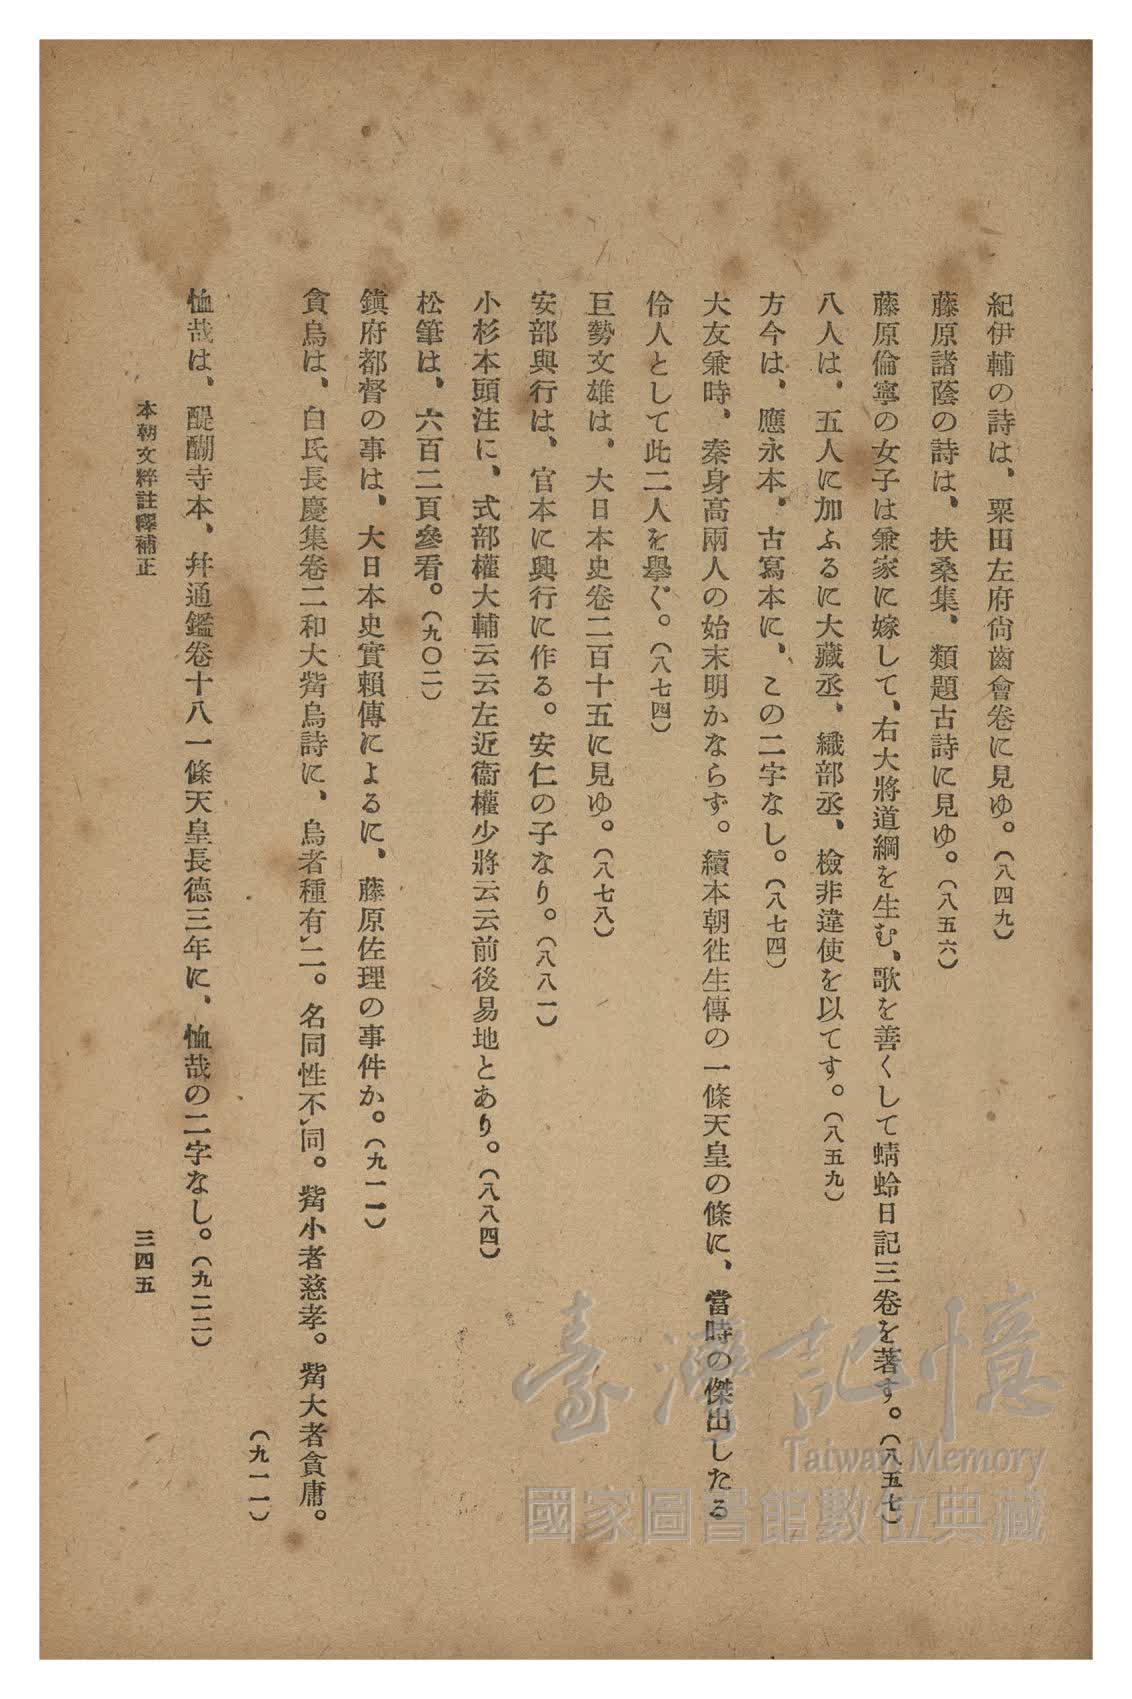 紀伊輔の詩は、粟田左府尙齒會卷に見ゆ。(八四九)
藤原諸蔭の詩は、扶桑集、類題古詩に見ゆ。(八五六)
藤原倫寧の女子は兼家に嫁して、右大將道綱を生む、歌を善くして蜻蛉日記三卷を著す。(八五七)
八人は、五人に加ふるに大藏丞、織部丞、檢非違使を以てす。(八五九)
方今は、應永本、古寫本に、この二字なし。(八七四)
大友兼時、秦身高兩人の始末明かならず。續本朝徃生傳の一條天皇の條に、當時の傑出したる
伶人として此二人を擧ぐ。(八七四)
巨勢文雄は、大日本史卷二百十五に見ゆ。(八七八)
安部興行は、官本に興行に作る。安仁の子なり。(八八一)
小杉本頭注に、式部權大輔云云左近衞權少將云云前後易地とあり。(八八四)
松筆は、六百二頁參看。(九〇二)
鎭府都督の事は、大日本史實賴傳によるに、藤原佐理の事件か。(九一一)
貪烏は、白氏長慶集卷二和大觜烏詩に、烏者種有㆑二。名同性不㆑同。觜小者慈孝。觜大者貪庸。
(九一一)
恤哉は、醍醐寺本、幷通鑑卷十八一條天皇長德三年に、恤哉の二字なし。(九二二)
本朝文粹註釋補正
三四五
臺灣記憶
Taiwan Memory
國家圖書館數位典藏